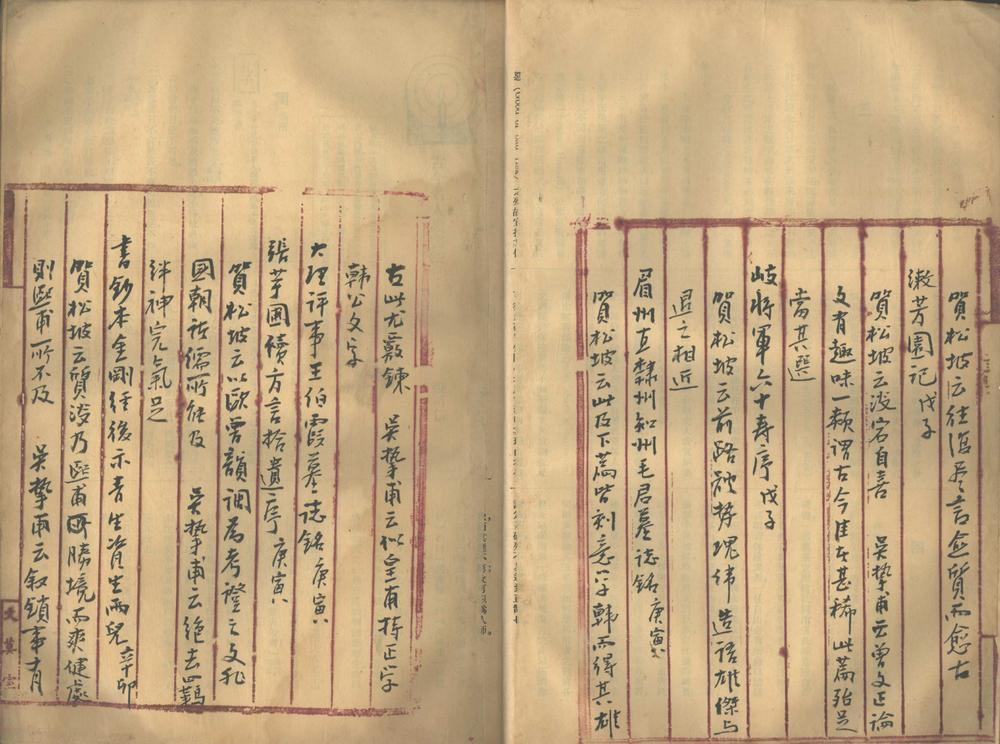 賀松坡云往復尽言愈質而愈古
漱芳園記戊子
賀松坡云淡宕自喜 吳摯甫云曾文正論
文有趣味一類謂古今隹者甚稀此篇殆足
當其選
岐將軍六十壽序戊子
賀松坡云前路體勢瑰偉造語雄傑与
退之相近
眉州直隸州知州毛君墓誌銘庚寅
賀松坡云此及下篇皆刻意學韓而得其雄
古此尤蒼鍊 吳摯甫云似皇甫持正字
韓公文字
大理評事王伯霞墓誌銘庚寅
張芋圃續方言拾遺序庚寅
賀松坡云以歐曾韻調為考證之文非
國朝諸儒所能及 吳摯甫云絕去羈
絆神完氣足
書鈔本金剛經後示青生資生兩兒
賀松坡云質淡乃熙甫勝境而爽健處
則熙甫所不及 吳摯甫云叙鎖事有
文草室